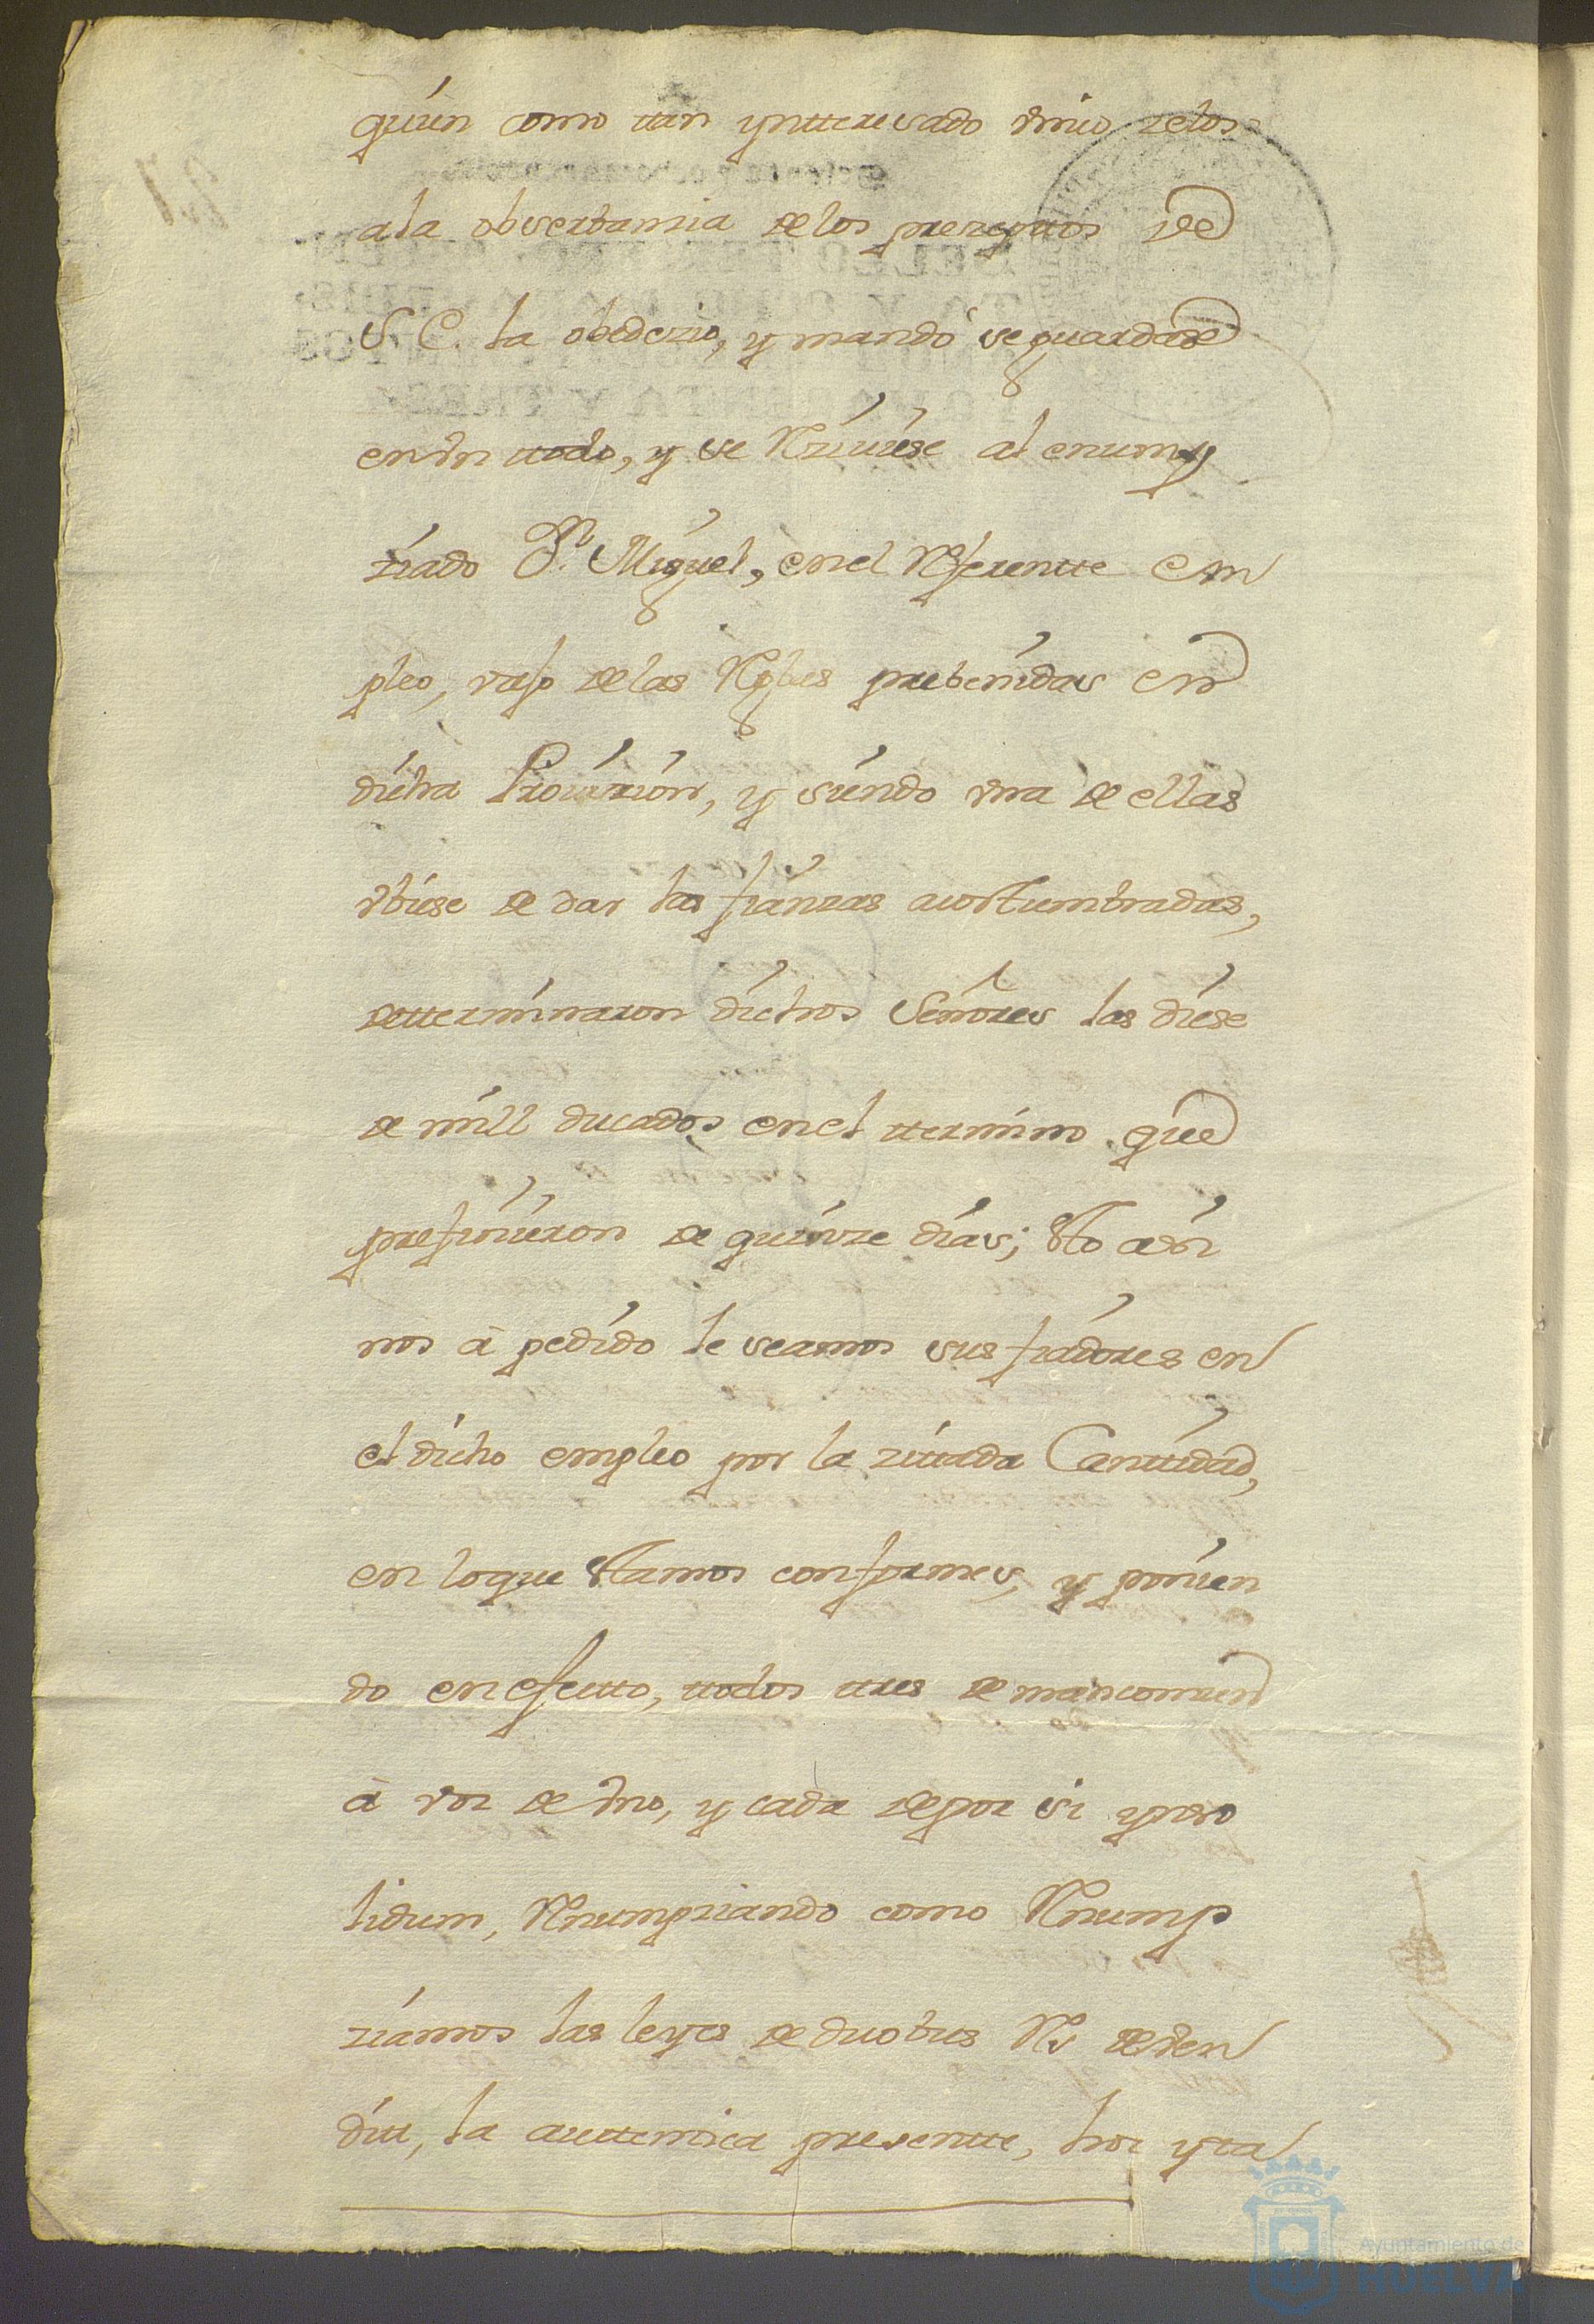 quien como tan yntteresado vnico zelos
a la obserbancia de los prezeptos de
S. E. la obedezio, y mandó se guardase
en vn ttodo, y se rziviese al enump
ziado Dn. Miguel, en el rfferentte em
pleo, vajo de las rglas prebenidas en
dicha Provizion, y siendo vna de ellas
vbiese de dar las fianzas acostumbradas,
detterminaron dichos Señores las diese
de mill ducados en el ttermino que
prefinieron de quinze dias;
nos à pedido le seamos sus fiadores en
el dicho empleo por la zittada Canttidad,
en lo que sttamos conformes, y ponien
do en efectto, ttodos ttres de mancomun
à voz de vno, y cada de por si ynso
lidum, rnumpziando como rnump
ziamos las leyes de duobus rs devven
ditt, la auttenica presentte, hoc yta
Ayuntamiento de
HUELVA